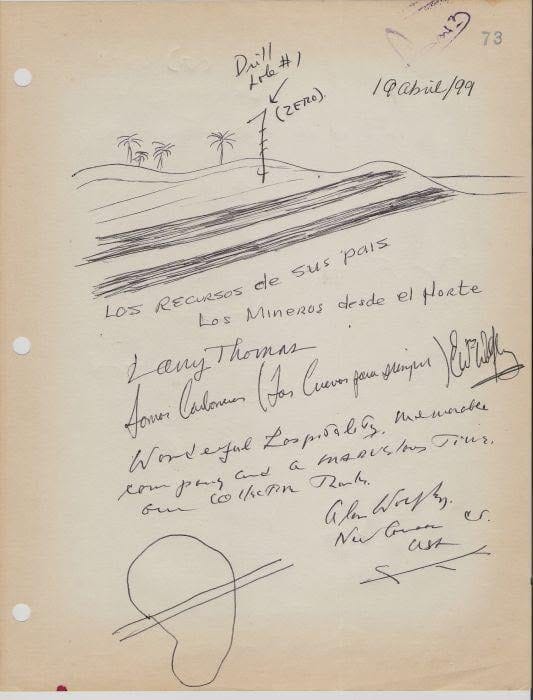 73
Drill
Hole #1
(ZERO).
19 abril/99
LOS RECURSOS de sus pais
Los Mineros desde el Norte
Larry Thomas
Somos Carboneros (Las Cuevas para siempre)
Wonderful Hospitality, Memorable
company and a MARVELOUS Time.
our collective Thanks.
Alan
New
USA